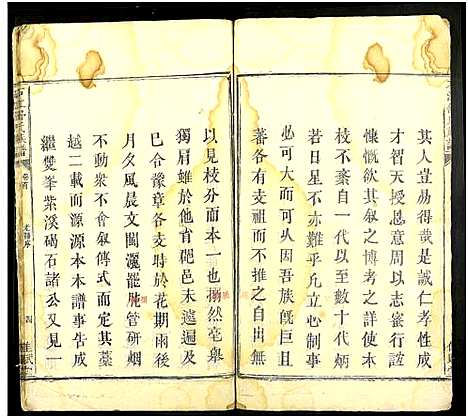 其人豈易得哉是誠仁孝性成
才智天授懇意周以志蜜行慮
慷慨欲其叙之博考之詳使本
枝不紊自一代以至數十代炳
若日星不亦難乎凢立心制事
必可大可久今因吾族旣巨且
蕃各有志而不推之自出無
以見枝分而本一也撊然亳舉
獨肩雖於他省硘邑未遑遍及
巳合豫章各支時於花期雨後
月夕風晨文閣灑罷脁管研烟
動衆不會叙傳式而定其藁
越二載而源源本本譜事告成
繼雙峯紫溪碣石諸公又見一
族譜
卷首
四